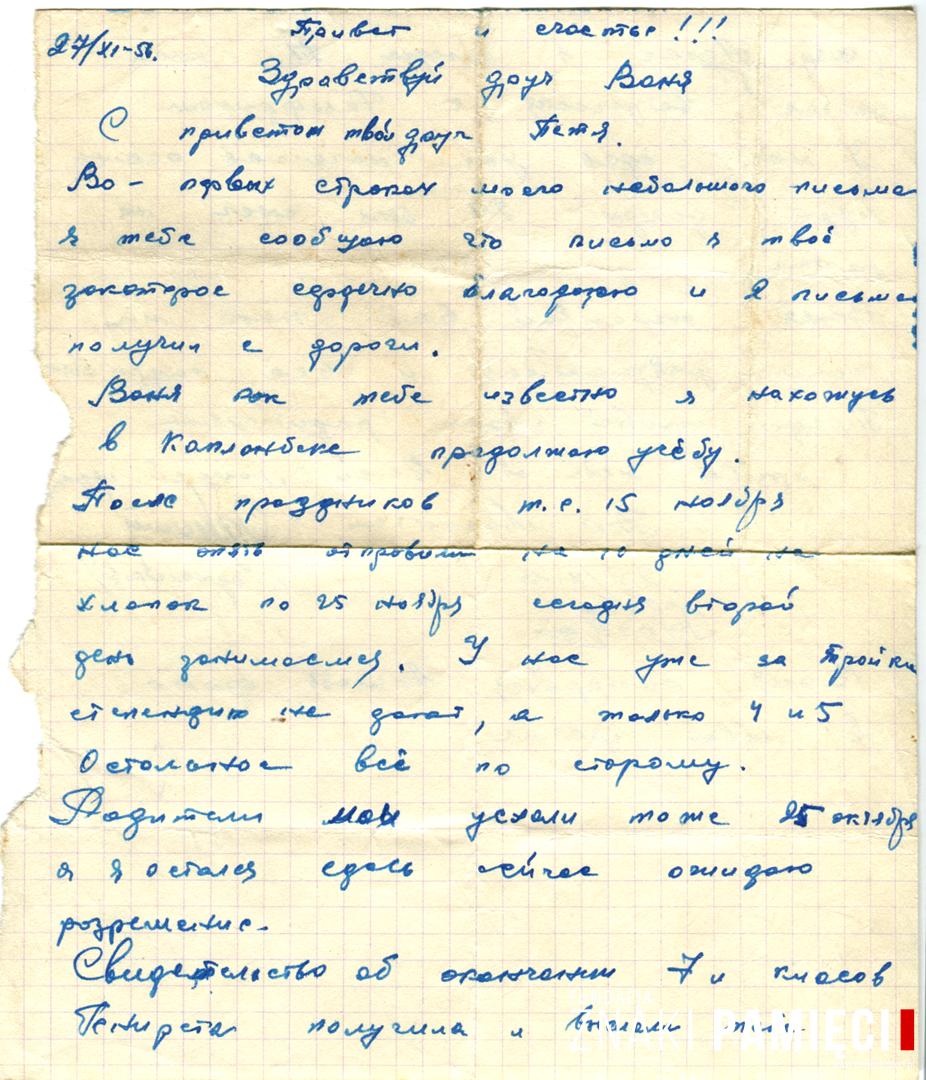 27/XI-56.
Привет и счастье!!!
Здравствуй друг Ваня
С приветом твой друг Петя.
Во-первых строках моего небольшого письма
я тебе сообщаю что письмо я твоё
закоторое сердечно благодарю и 2 письма
получил с дороги.
Ваня как тебе известно я нахожусь
в Капланбеке продолжаю учёбу.
После праздников т.е. 15 ноября
нас опять отправили на 10 дней на
хлопок по 25 ноября сегодня второй
день занимаемся. У нас уже за тройки
степендию не дают, а только 4 и 5
Остольное всё по старому.
Родители мои уехали тоже 25 октября
а я остался здесь сейчас ожидаю
розрешение.
Свидетельство об окончании 7и класов
получила и
ZNAKI PAMIĘCI